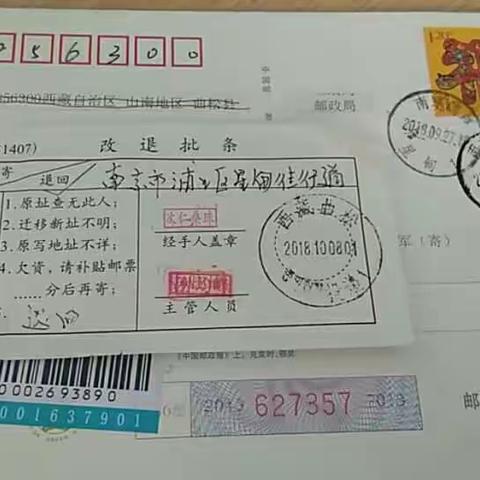 1.20元
56300
856300西藏自治区 山南地区 曲松县
邮政局
南京
2018.09.27
1407)
改退批条
寄
退回
南京市浦口区星甸街道
1.原址查无此人;
2.迁移新址不明;
3.原写地址不详;
4.欠资,请补贴邮票
......分后再寄;
退回
经手人盖章
主管人员
西藏曲松
2018.10.08.01
军(寄)
《中国邮政报》上,兑奖时,领奖
00002693890
0001637901
2013 627357 2013
邮